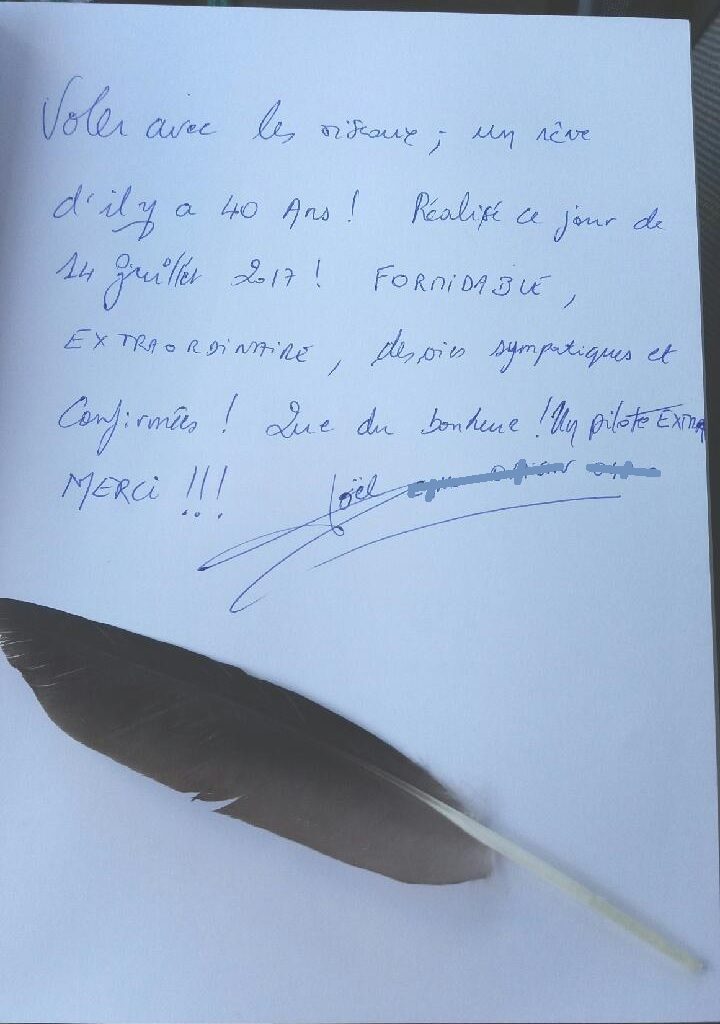 Voler avec les oiseaux ; un rêve
d'il y a 40 Ans ! Réalisé ce jour de
14 juillet 2017 ! FORMIDABLE,
EXTRAORDINAIRE, des oies sympatiques et
Confirmées ! Que du bonheur ! Un pilote EXTRA
MERCi !!! Joël